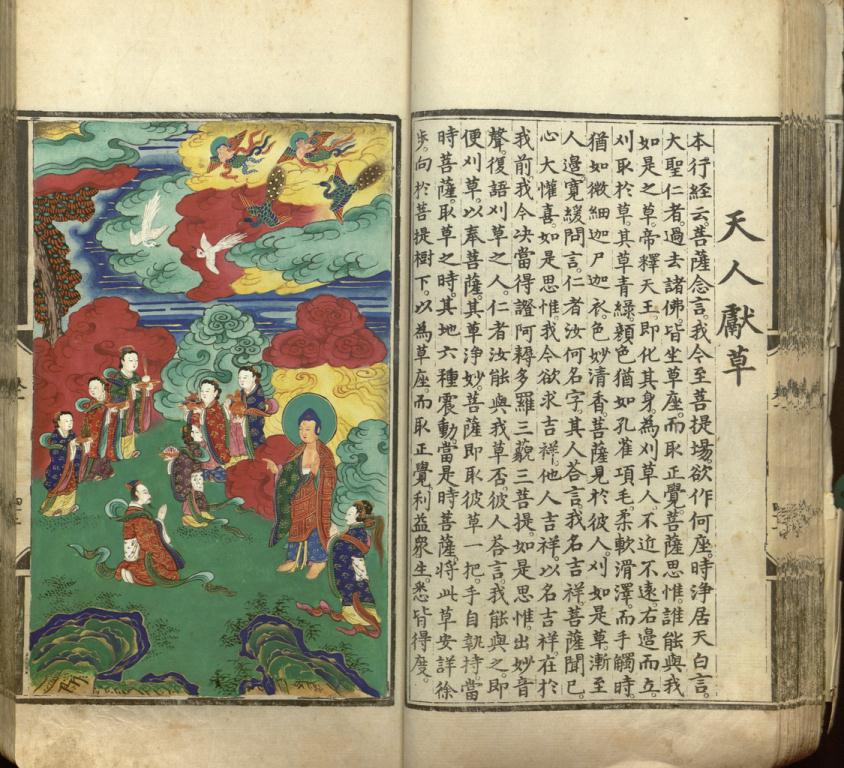 天人獻草
本行經云。菩薩念言。我今至菩提場。欲作何座。時淨居天白言。
大聖仁者。過去諸佛。皆坐草座。而取正覺。菩薩思惟。誰能與我
如是之草。帝釋天王。即化其身。為刈草人。不近不遠。右邊而立。
刈取於草。其草青綠。顏色猶如孔雀項毛。柔軟滑澤。而手觸時。
猶如微細迦尸迦衣。色妙清香。菩薩見於彼人。刈如是草。漸至
人邊。寬緩問言。仁者汝何名字。其人荅言。我名吉祥。菩薩聞已。
心大懽喜。如是思惟。我今欲求吉祥。他人吉祥。以名吉祥。在於
我前。我今決當得證阿耨多羅三藐三菩提。如是思惟。出妙音
聲。復語刈草之人。仁者汝能與我草否。彼人荅言。我能與之。即
便刈草。以奉菩薩。其草淨妙。菩薩即取彼草一把。手自執持。當
時菩薩。取草之時。其地六種震動。當是時菩薩。將此草安詳徐
步。向於菩提樹下。以為草座。而取正覺。利益眾生。悉皆得度。